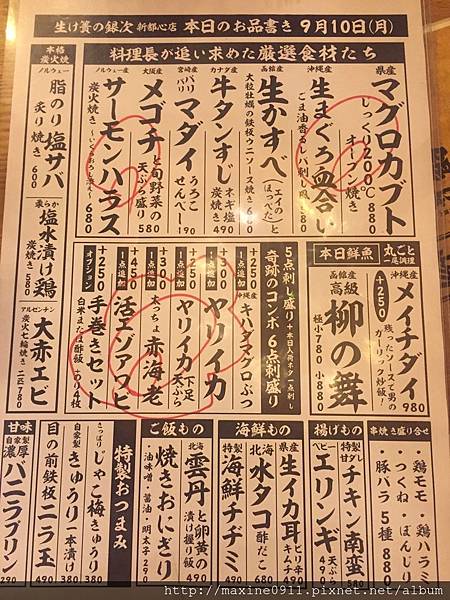 生け簀の銀次 新都心店 本日のお品書き 9月10日(月)
料理長が追い求めた厳選食材たち
県産
マグロカブト
じっくり200℃
オーブン焼き
680
沖縄産
生まぐろ血合い
ごま油香るレバ刺し風
580
函館産
生かすべ
(エイのほっぺた)
大粒牡蠣の鉄板ウニソース焼き 680
カナダ産
牛タンすじ
ネギ塩炭焼き 680
宮崎産
パリパリ
マダイ
うろこせんべー
190
大阪産
メゴチ
と旬野菜の天ぷら盛り 580
ノルウェー産
サーモンハラス
炭火焼き
680
本格炭火焼
ノルウェー
脂のり塩サバ
炙り焼き 600
柔らか
塩水漬け鶏
炭焼き 580
アルゼンチン
大赤エビ
炭火七輪焼き 二匹780
本日鮮魚
丸ごと一尾調理
沖縄産
メイチダイ
980
+250
残ったソースで男のガーリック炒飯!
函館産
高級
柳の舞
極小780 小880
5点刺し盛り
+本日入荷ネタ一点刺し
奇跡のコンボ 6点刺盛り
+250
1点追加
沖縄産
キハダマグロぶつ
+300
1点追加
ヤリイカ
+450
1点追加
ヤリイカ
下足天ぷら
+300
1点追加
太っちょ
赤海老
+450
1点追加
活エゾアワビ
+250
オプション
手巻きセット
白米または酢飯+のり4枚
串焼き盛り合せ
・鶏モモ
・鶏ハラミ
・つくね
・ぼんじり
・豚バラ
5種880
揚げもの
特製甘ダレ
チキン南蛮
580
ベビー
エリンギ
天ぷら 490
海鮮もの
県産
生イカ耳
ピリ辛キムチ 490
北海
水タコ
酢だこ 680
特製
海鮮チヂミ
490
ご飯もの
北海
雲丹
と卵黄の漬け握り飯 490
焼きおにぎり
油味噌・醤油・明太子 290
特製おつまみ
さっぱり
じゃこ梅きゅうり
390
自家製
きゅうり一本漬け
380
目の前鉄板ニラ玉
490
甘味
自家製
濃厚バニラプリン
290
http://maxine0911.pixnet.net/album